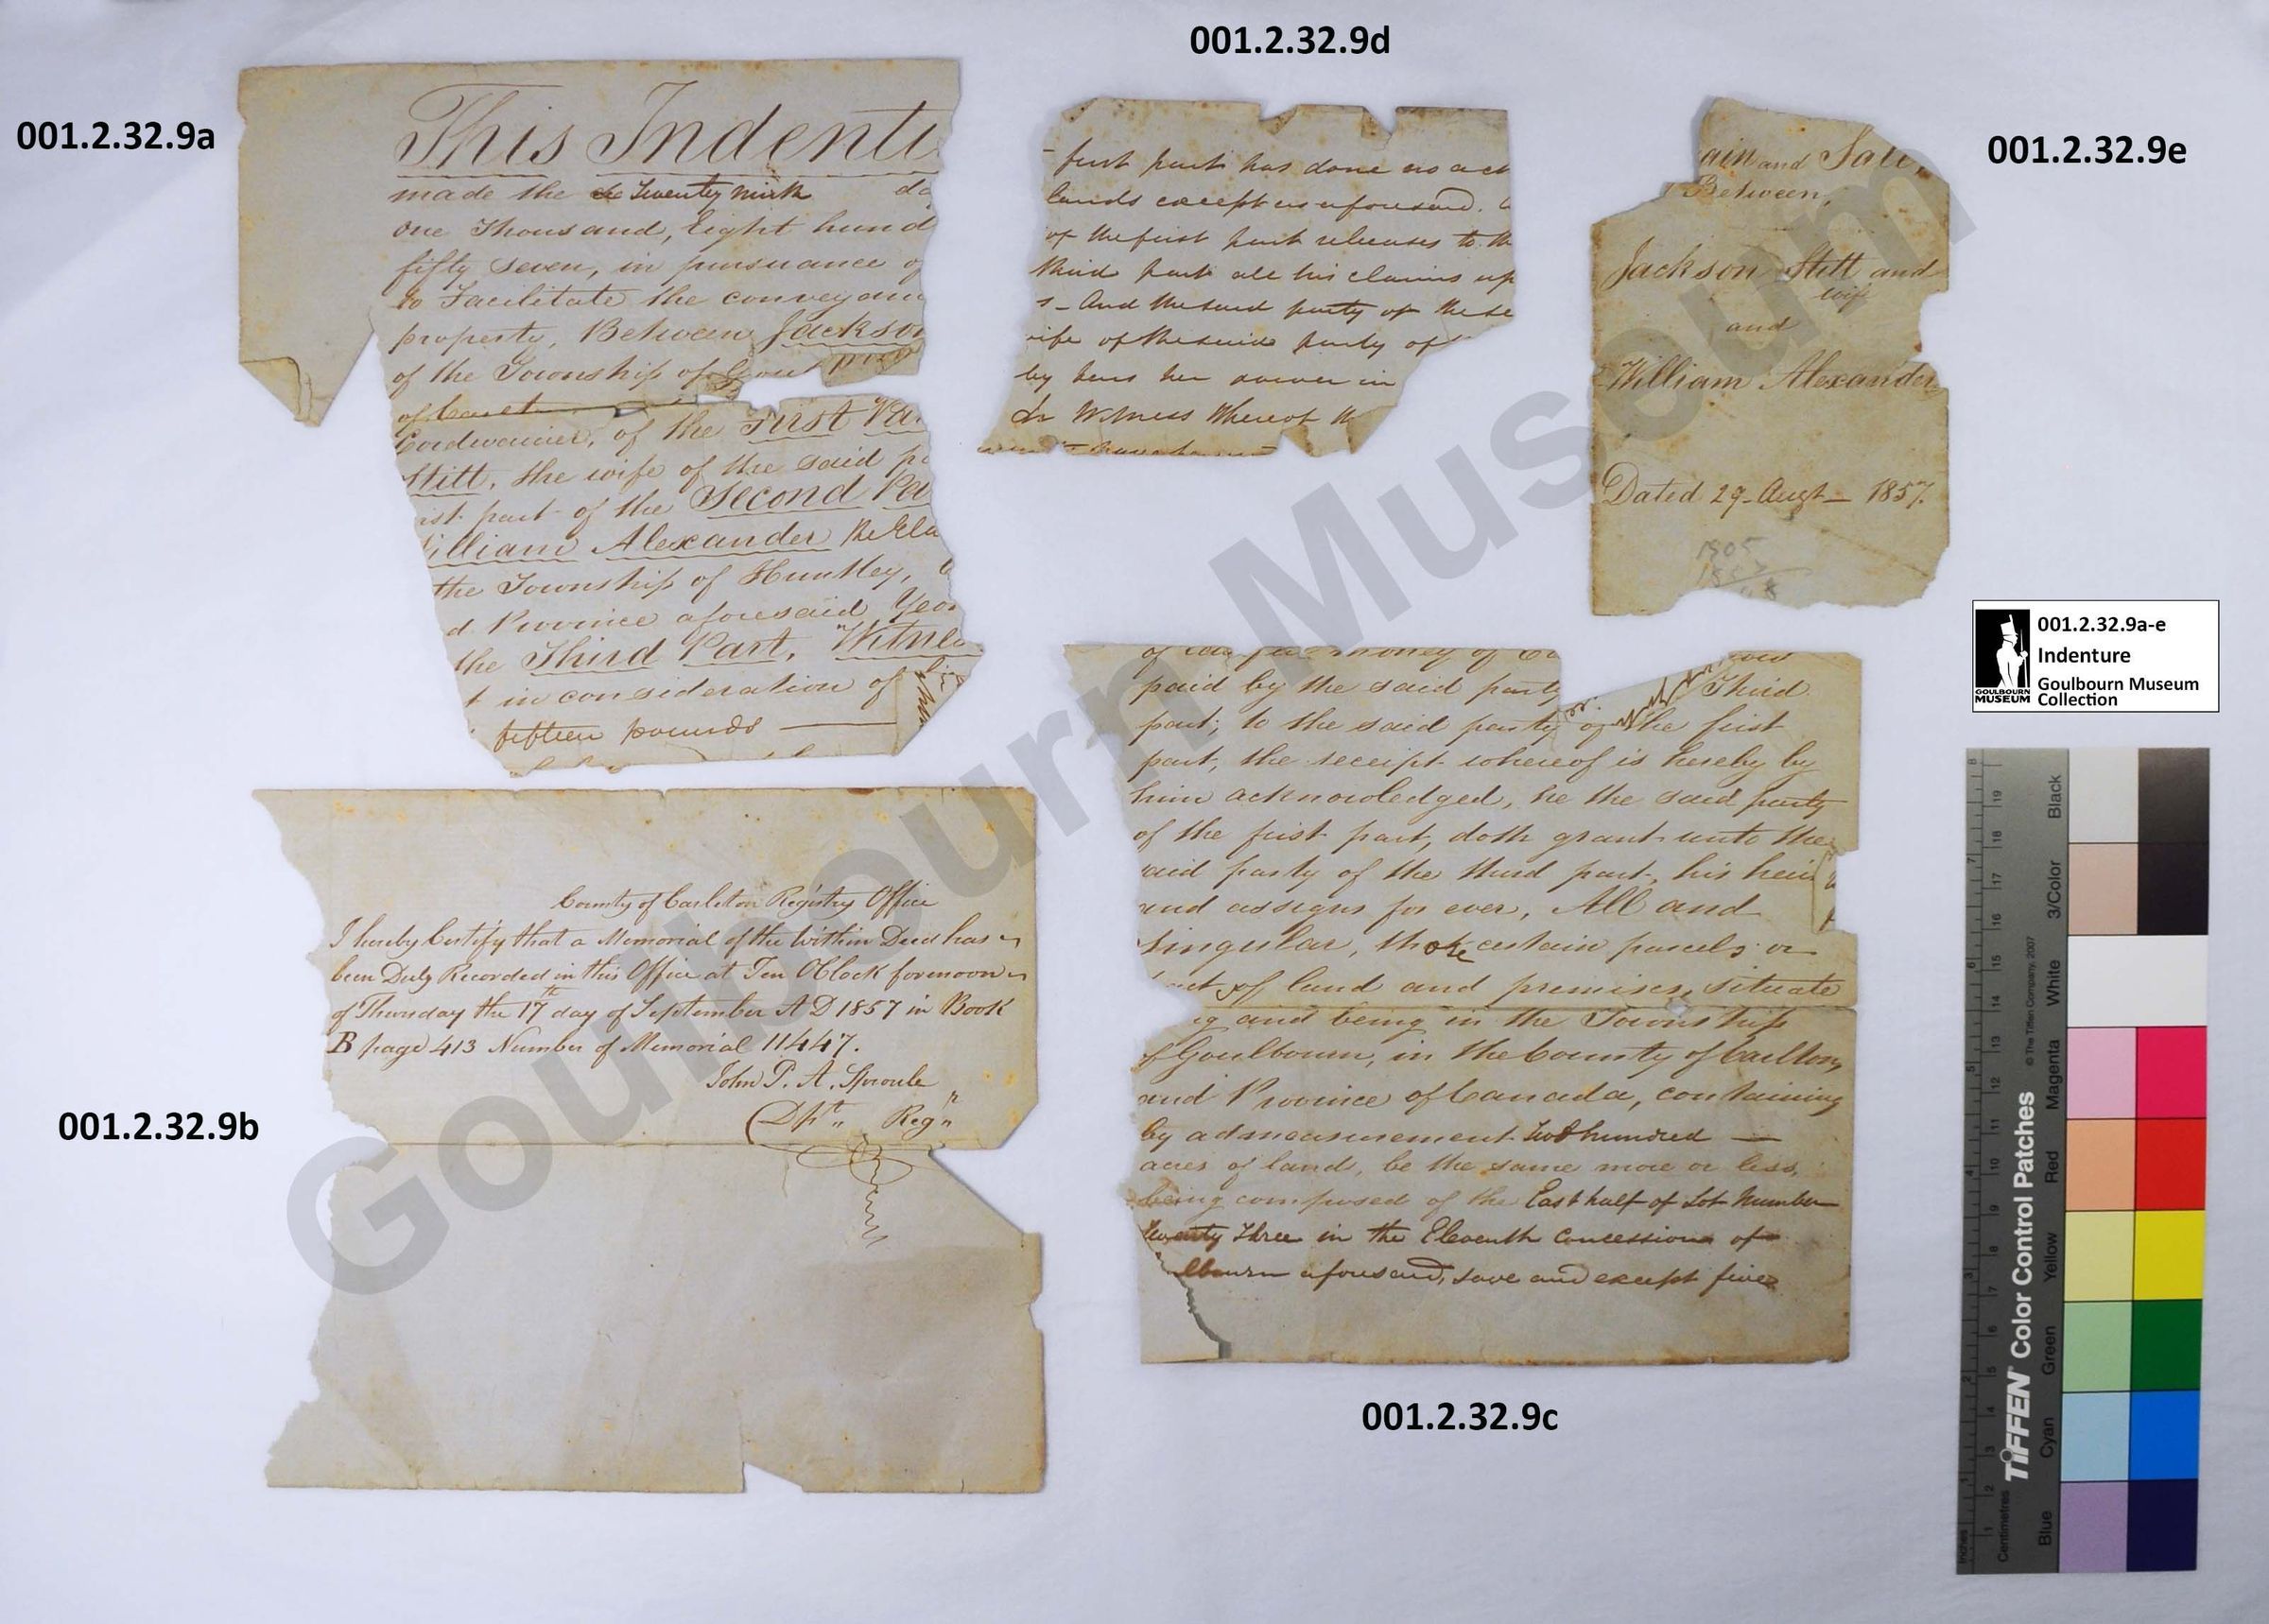 001.2.32.9a
This Indentu
made the Twenty ninth da
One Thousand, Eight hund
fifty Seven, in pursuance of
to Facilitate the conveyanc
property, Between Jackson
of the Township of
Cordwainer, of the First Par
Stitt, the wife of the said pa
ist part of the Second Par
illiam Alexander the Elde
the Township of Huntley,
d Province aforesaid Yeo
the Third Part, Witnes
t in consideration of
fifteen pounds
001.2.32.9b
County of Carleton Registry Office
I hereby Certify that a Memorial of the within Deed has
been Duly Recorded in this Office at Ten OClock forenoon
of Thursday the 17th day of September A D 1857 in Book
B page 413 Number of Memorial 11447.
John P. A. Sproule
Dpt Regr
001.2.32.9d
first part has done no act
lands except as aforesaid.
of the first part releases to th
third part all his claims up
s - And the said party of the se
wife of the said party of
by bars her dower in
In Witness Whereof th
001.2.32.9c
money of
paid by the said party Third
part; to the said party of the first
part, the receipt whereof is hereby by
him acknowledged, he the said party
of the first part, doth grant unto the
said party of the third part, his heirs
and assigns for ever, All and
Singular, those certain parcels or
act of land and premises, situate
g and being in the Township
of Goulbourn, in the County of Carlton,
and Province of Canada, containing
by admeasurement two hundred
acres of land, be the same more or less,
being composed of the East half of Lot Number
Twenty Three in the Eleventh Concession of
lbourn aforesaid, save and except five
001.2.32.9e
ain and Sale,
Between,
Jackson Stitt and
wife
and
William Alexander
Dated 29 Augt - 1857.
1905
001.2.32.9a-e
Indenture
Goulbourn Museum
Collection
GOULBOURN
MUSEUM
Goulbourn Museum
TIFFEN Color Control Patches
© The Tiffen Company, 2007
Centimetres
Inches
Blue
Cyan
Green
Yellow
Red
Magenta
White
3/Color
Black